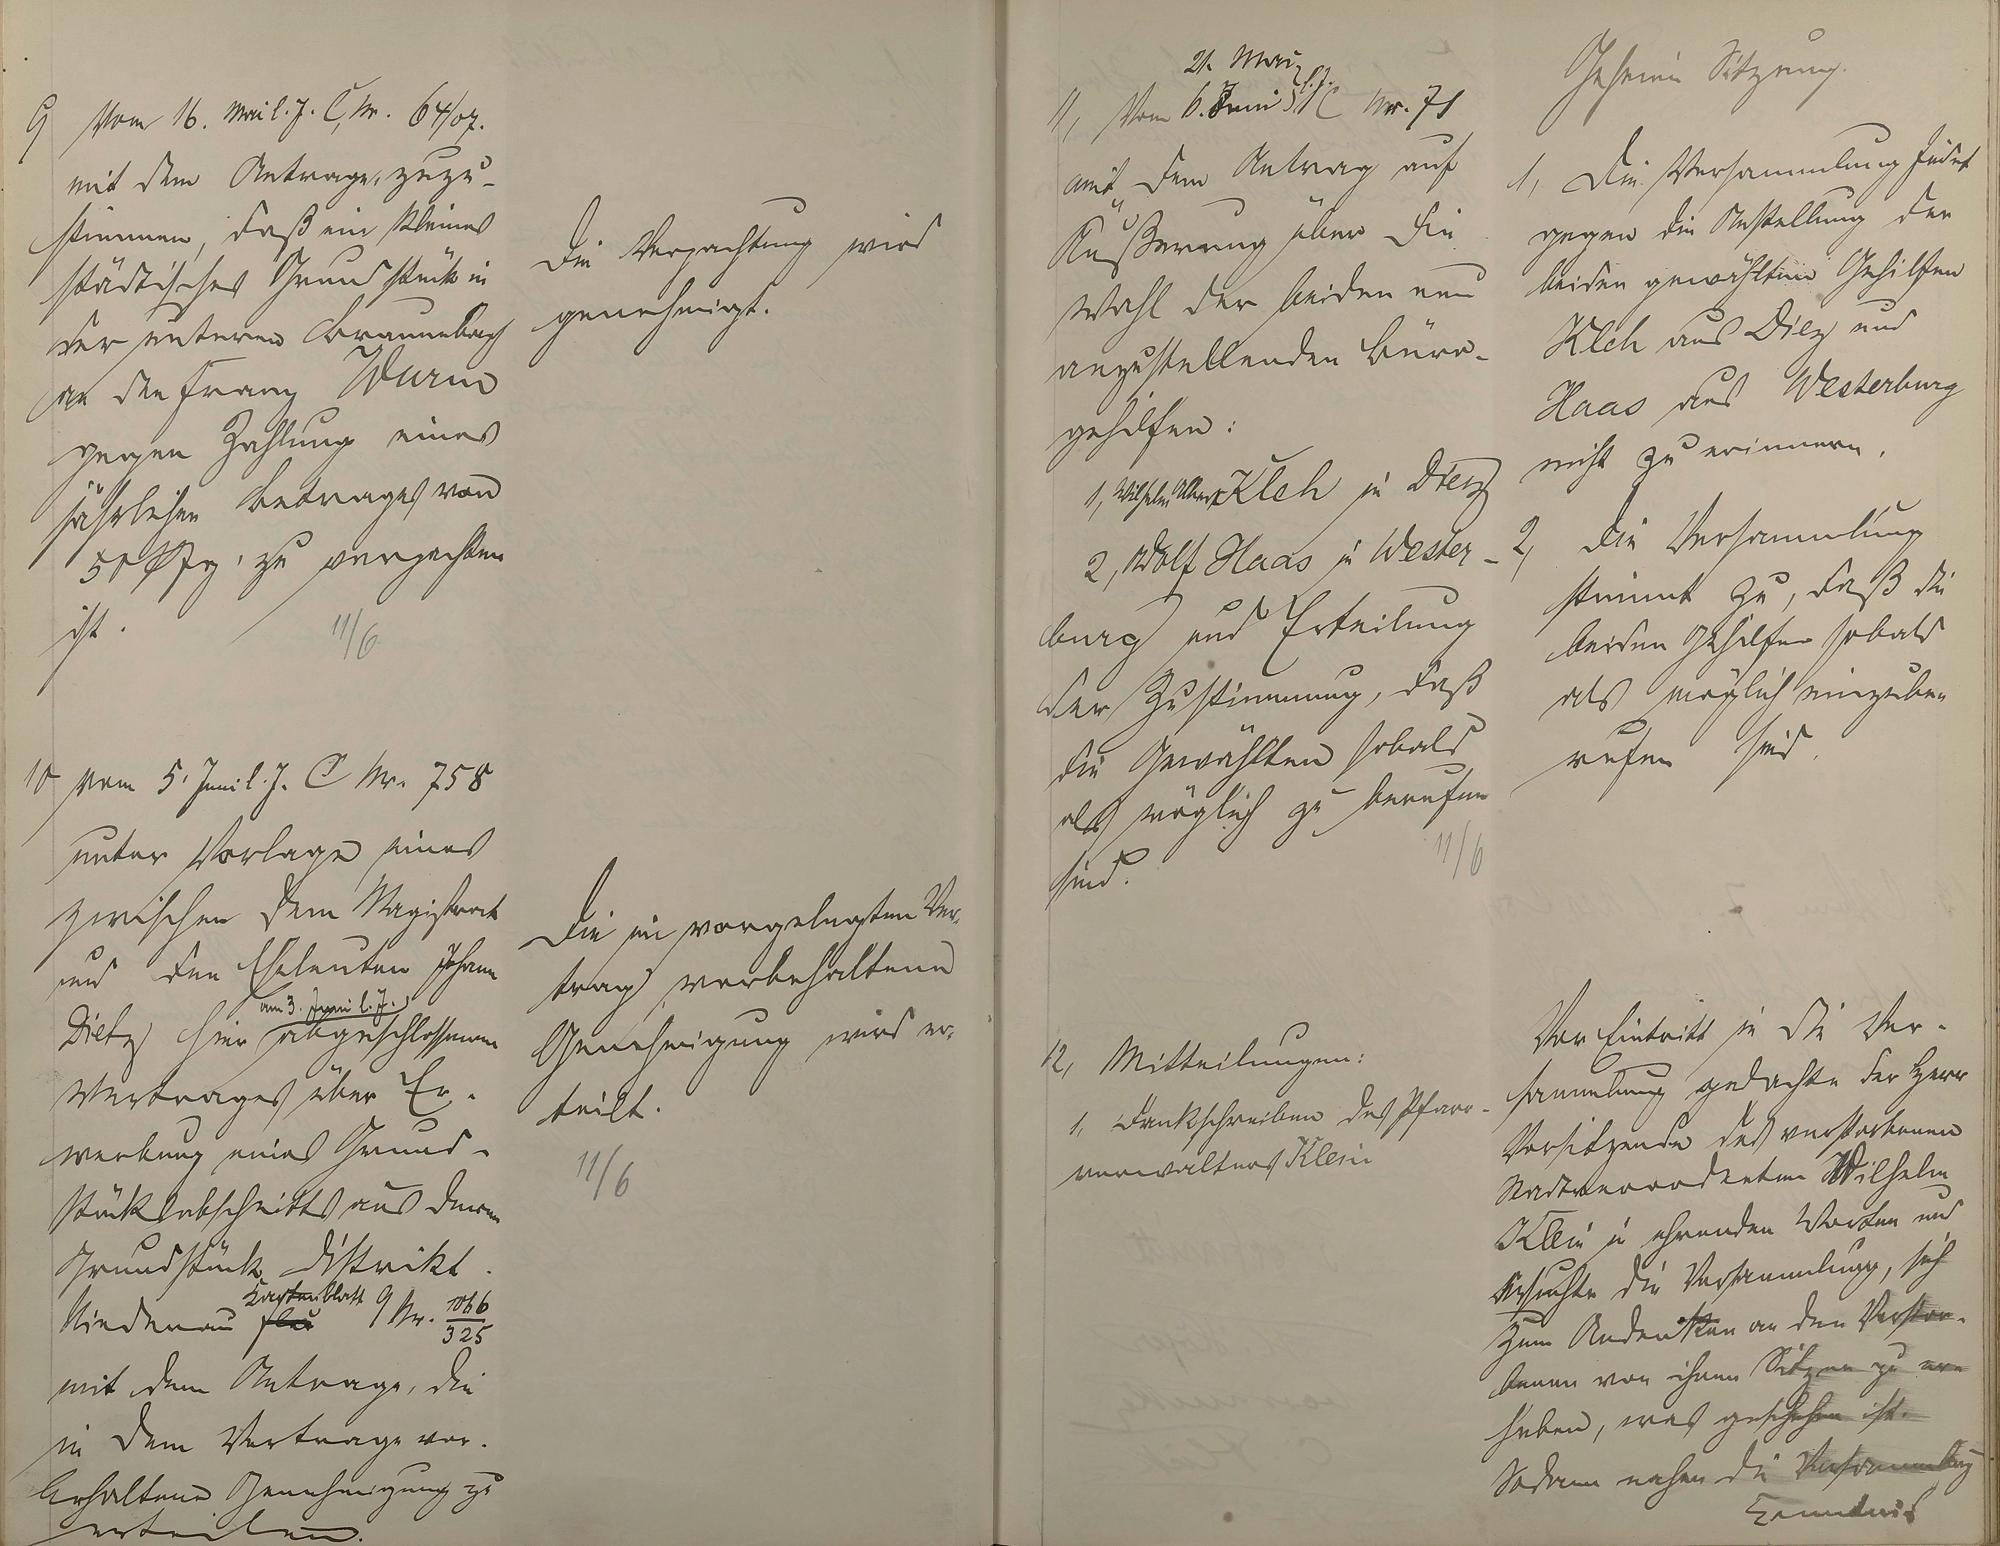 9 Vom 16. Mai l. J. C, Nr. 64/07.
mit dem Antrage, zuzu-
stimmen, daß ein kleines
städtisches Grundstück in
der unteren Braunebach
an den Franz Wurm
gegen Zahlung eines
jährlichen Betrages von
50 Pfg. zu verpachten
ist.
11/6
Die Verpachtung wird
genehmigt.
10 vom 5. Juni l. J. C Nr. 758
unter Vorlage eines
zwischen dem Magistrat
und den Eheleuten Johann
am 3. Juni l. J.
Dietz hier abgeschlossenen
Vertrages über Er-
werbung eines Grund-
stücksabschnitts aus deren
Grundstück Distrikt
Kartenblatt
Niedenau 9 Nr. 1066/325
mit dem Antrage, die
in dem Vertrage vor-
behaltene Genehmigung zu
erteilen.
Die im vorgelegten Ver-
trag vorbehaltene
Genehmigung wird er-
teilt.
11/6
21. Mai
11, Vom 6. Juni l. J. C Nr. 71
mit dem Antrag auf
Äußerung über die
Wahl der beiden neu
anzustellenden Büro-
gehilfen:
1, Wilhelm Albert Kleh in Diez
2, Adolf Haas in Wester-
burg und Erteilung
der Zustimmung, daß
die Gewählten sobald
als möglich zu berufen
sind.
11/6
12, Mitteilungen:
1, Dankschreiben des Pfarr-
verwalters Klein
Geheime Sitzung.
1, Die Versammlung findet
gegen die Anstellung der
beiden gewählten Gehilfen
Kleh aus Diez und
Haas aus Westerburg
nicht zu erinnern.
2, Die Versammlung
stimmt zu, daß die
beiden Gehilfen sobald
als möglich einzube-
rufen sind.
Vor Eintritt in die Ver-
sammlung gedachte der Herr
Vorsitzende des verstorbenen
Stadtverordneten Wilhelm
Klein in ehrenden Worten und
ersuchte die Versammlung, sich
zum Andenken an den Verstor-
benen von ihren Sitzen zu er-
heben, was geschehen ist.
Sodann nahm die Versammlung
Kenntnis